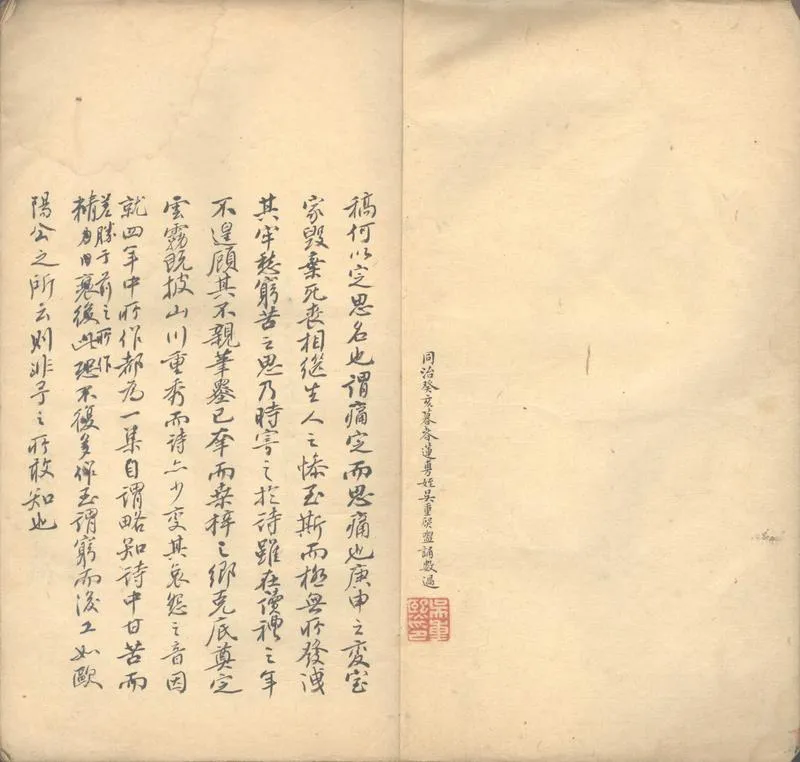 同治癸亥暮春蓮姪吳重熙盥誦數過
吳重熙印
稿何以定思名也謂痛定而思痛也庚申之變室
家毀棄死喪相繼生人之慘至斯而極無所發洩
其牢愁窮苦之思乃時寄之於詩雖在讀禮之年
不遑顧其不親筆墨已幸而桑梓之鄉克底奠定
雲霧既披山川重秀而詩亦少變其哀怨之音因
就四年中所作都為一集自謂略知詩中甘苦而
差勝于前之所作
精力日衰後此恐不復多作至謂窮而後工如歐
陽公之所云則非予之所敢知也